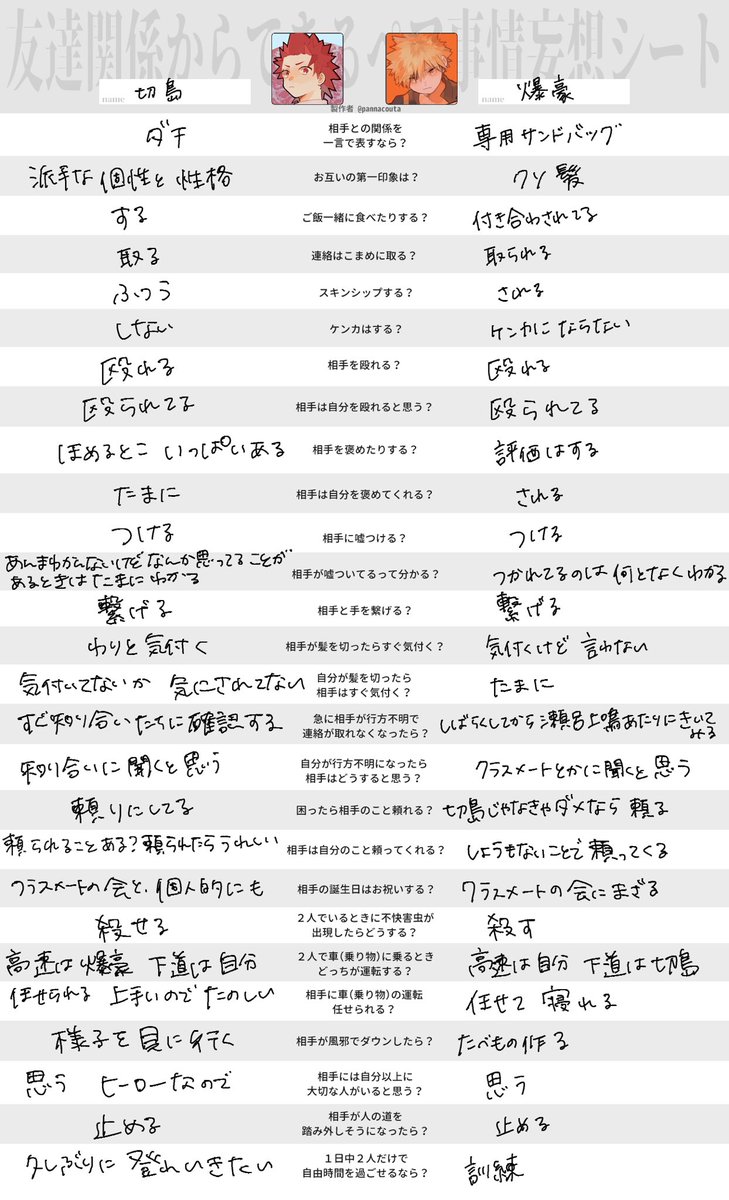 友達関係からできるペア事情妄想シート
name 切島
name 爆豪
製作者 @pannacouta
ダチ 相手との関係を 専用サンドバッグ
一言で表すなら？
派手な個性と性格 お互いの第一印象は？ クソ髪
する ご飯一緒に食べたりする？ 付き合わされてる
取る 連絡はこまめに取る？ 取られる
ふつう スキンシップする？ される
しない ケンカはする？ ケンカにならない
殴れる 相手を殴れる？ 殴れる
殴られてる 相手は自分を殴れると思う？ 殴られてる
ほめるとこいっぱいある 相手を褒めたりする？ 評価はする
たまに 相手は自分を褒めてくれる？ される
つける 相手に嘘つける？ つける
あんまわかんないけどなんか思ってることが
あるときはたまにわかる 相手が嘘ついてるって分かる？ つかれてるのは何となくわかる
繋げる 相手と手を繋げる？ 繋げる
わりと気付く 相手が髪を切ったらすぐ気付く？ 気付くけど言わない
気付いてないか気にされてない 自分が髪を切ったら たまに
相手はすぐ気付く？
すぐ知り合いたちに確認する 急に相手が行方不明で しばらくしてから瀬呂上鳴あたりにきいて
連絡が取れなくなったら？ みる
知り合いに聞くと思う 自分が行方不明になったら クラスメートとかに聞くと思う
相手はどうすると思う？
頼りにしてる 困ったら相手のこと頼れる？ 切島じゃなきゃダメなら頼る
頼られることある？頼られたらうれしい 相手は自分のこと頼ってくれる？ しょうもないことで頼ってくる
クラスメートの会と、個人的にも 相手の誕生日はお祝いする？ クラスメートの会にまざる
殺せる 2人でいるときに不快害虫が 殺す
出現したらどうする？
高速は爆豪 下道は自分 2人で車(乗り物)に乗るとき 高速は自分 下道は切島
どっちが運転する？
任せられる 上手いのでたのしい 相手に車(乗り物)の運転 任せて寝れる
任せられる？
様子を見に行く 相手が風邪でダウンしたら？ たべもの作る
思う ヒーローなので 相手には自分以上に 思う
大切な人がいると思う？
止める 相手が人の道を 止める
踏み外しそうになったら？
久しぶりに登れいきたい 1日中2人だけで 訓練
自由時間を過ごせるなら？